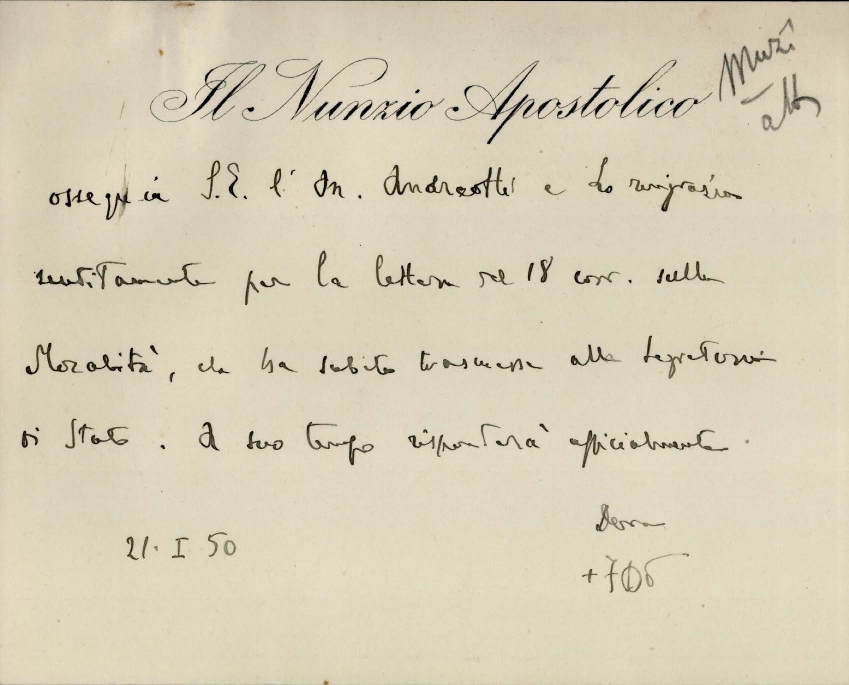 Il Nunzio Apostolico
ossequia S.E. l' On. Andreotti e Lo ringrazia
sentitamente per la lettera del 18 corr. sulla
Moralità, che ha subito trasmessa alla Segreteria
di Stato. A suo tempo risponderà ufficialmente.
21. I 50